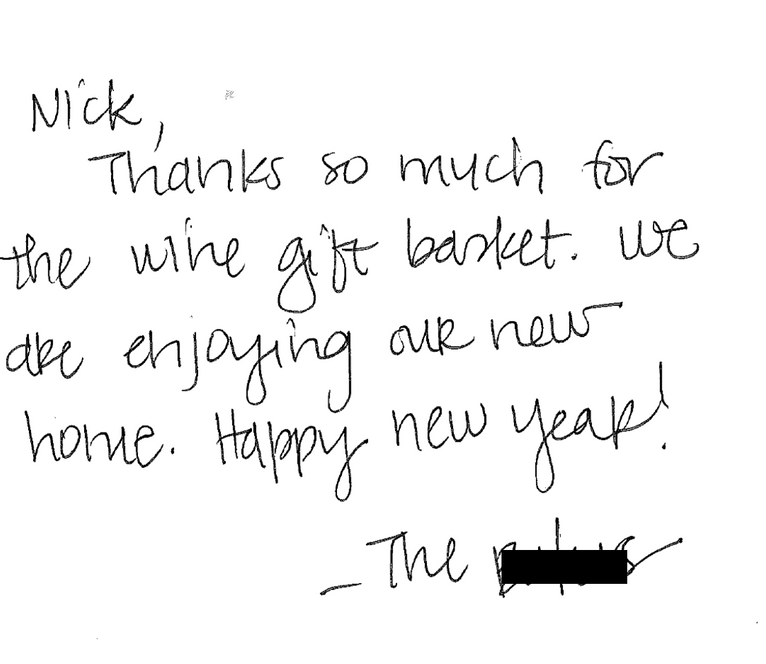 Nick,
Thanks so much for
the wine gift basket. We
are enjoying our new
home. Happy new year!
- The